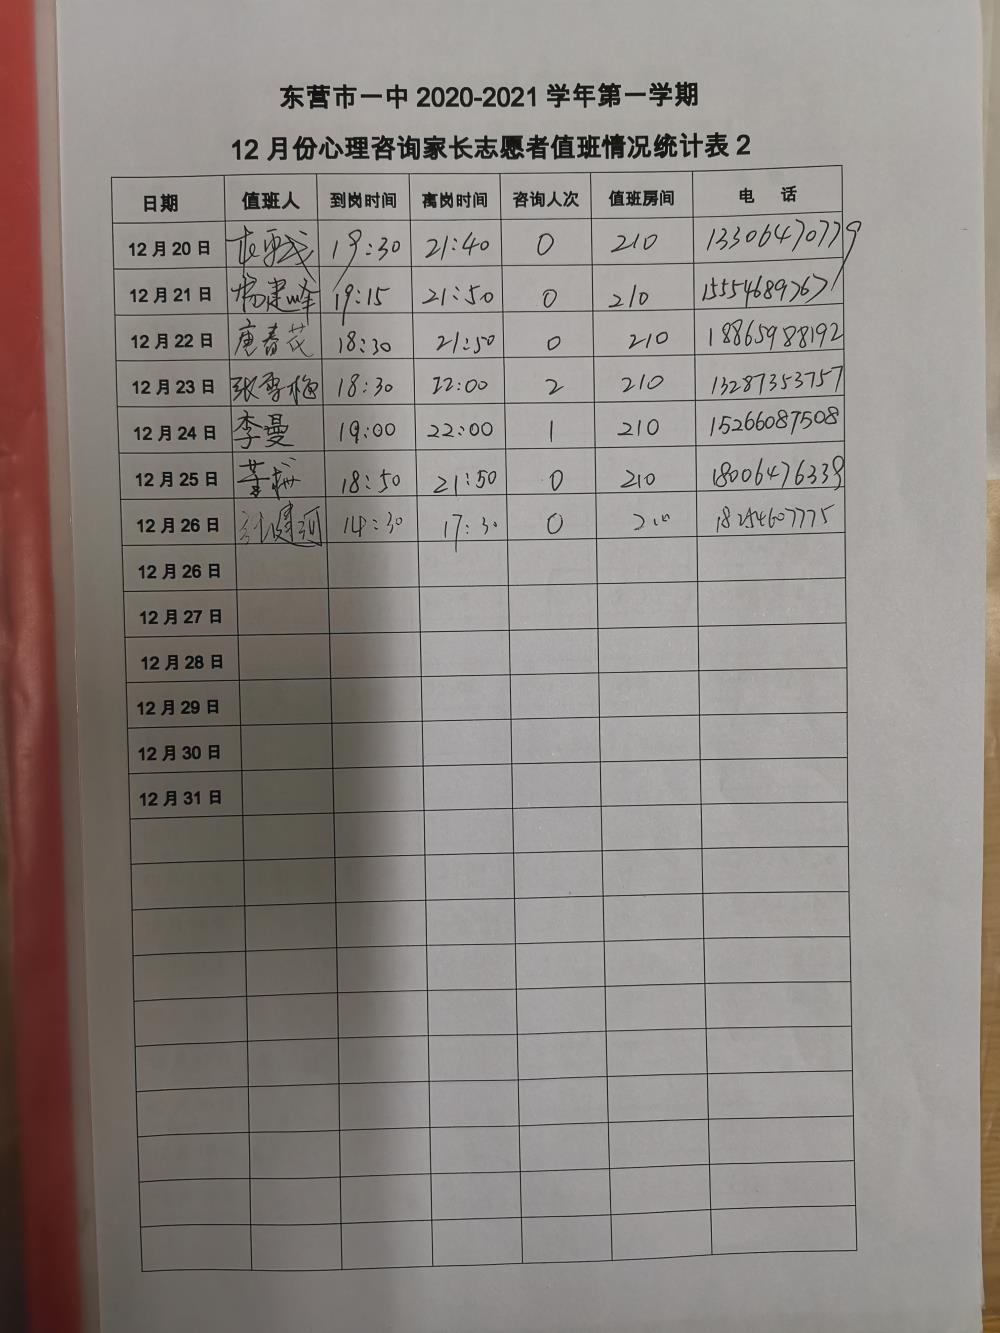 东营市一中2020-2021学年第一学期
12月份心理咨询家长志愿者值班情况统计表2
日期 值班人 到岗时间 离岗时间 咨询人次 值班房间 电 话
12月20日 19:30 21:40 0 210 13306470779
12月21日 杨建峰 19:15 21:50 0 210 15554689767
12月22日 唐春花 18:30 21:50 0 210 18865988192
12月23日 张雪梅 18:30 22:00 2 210 13287353757
12月24日 李曼 19:00 22:00 1 210 15266087508
12月25日 18:50 21:50 0 210 18006476339
12月26日 14:30 17:30 0 210 18254607775
12月26日
12月27日
12月28日
12月29日
12月30日
12月31日